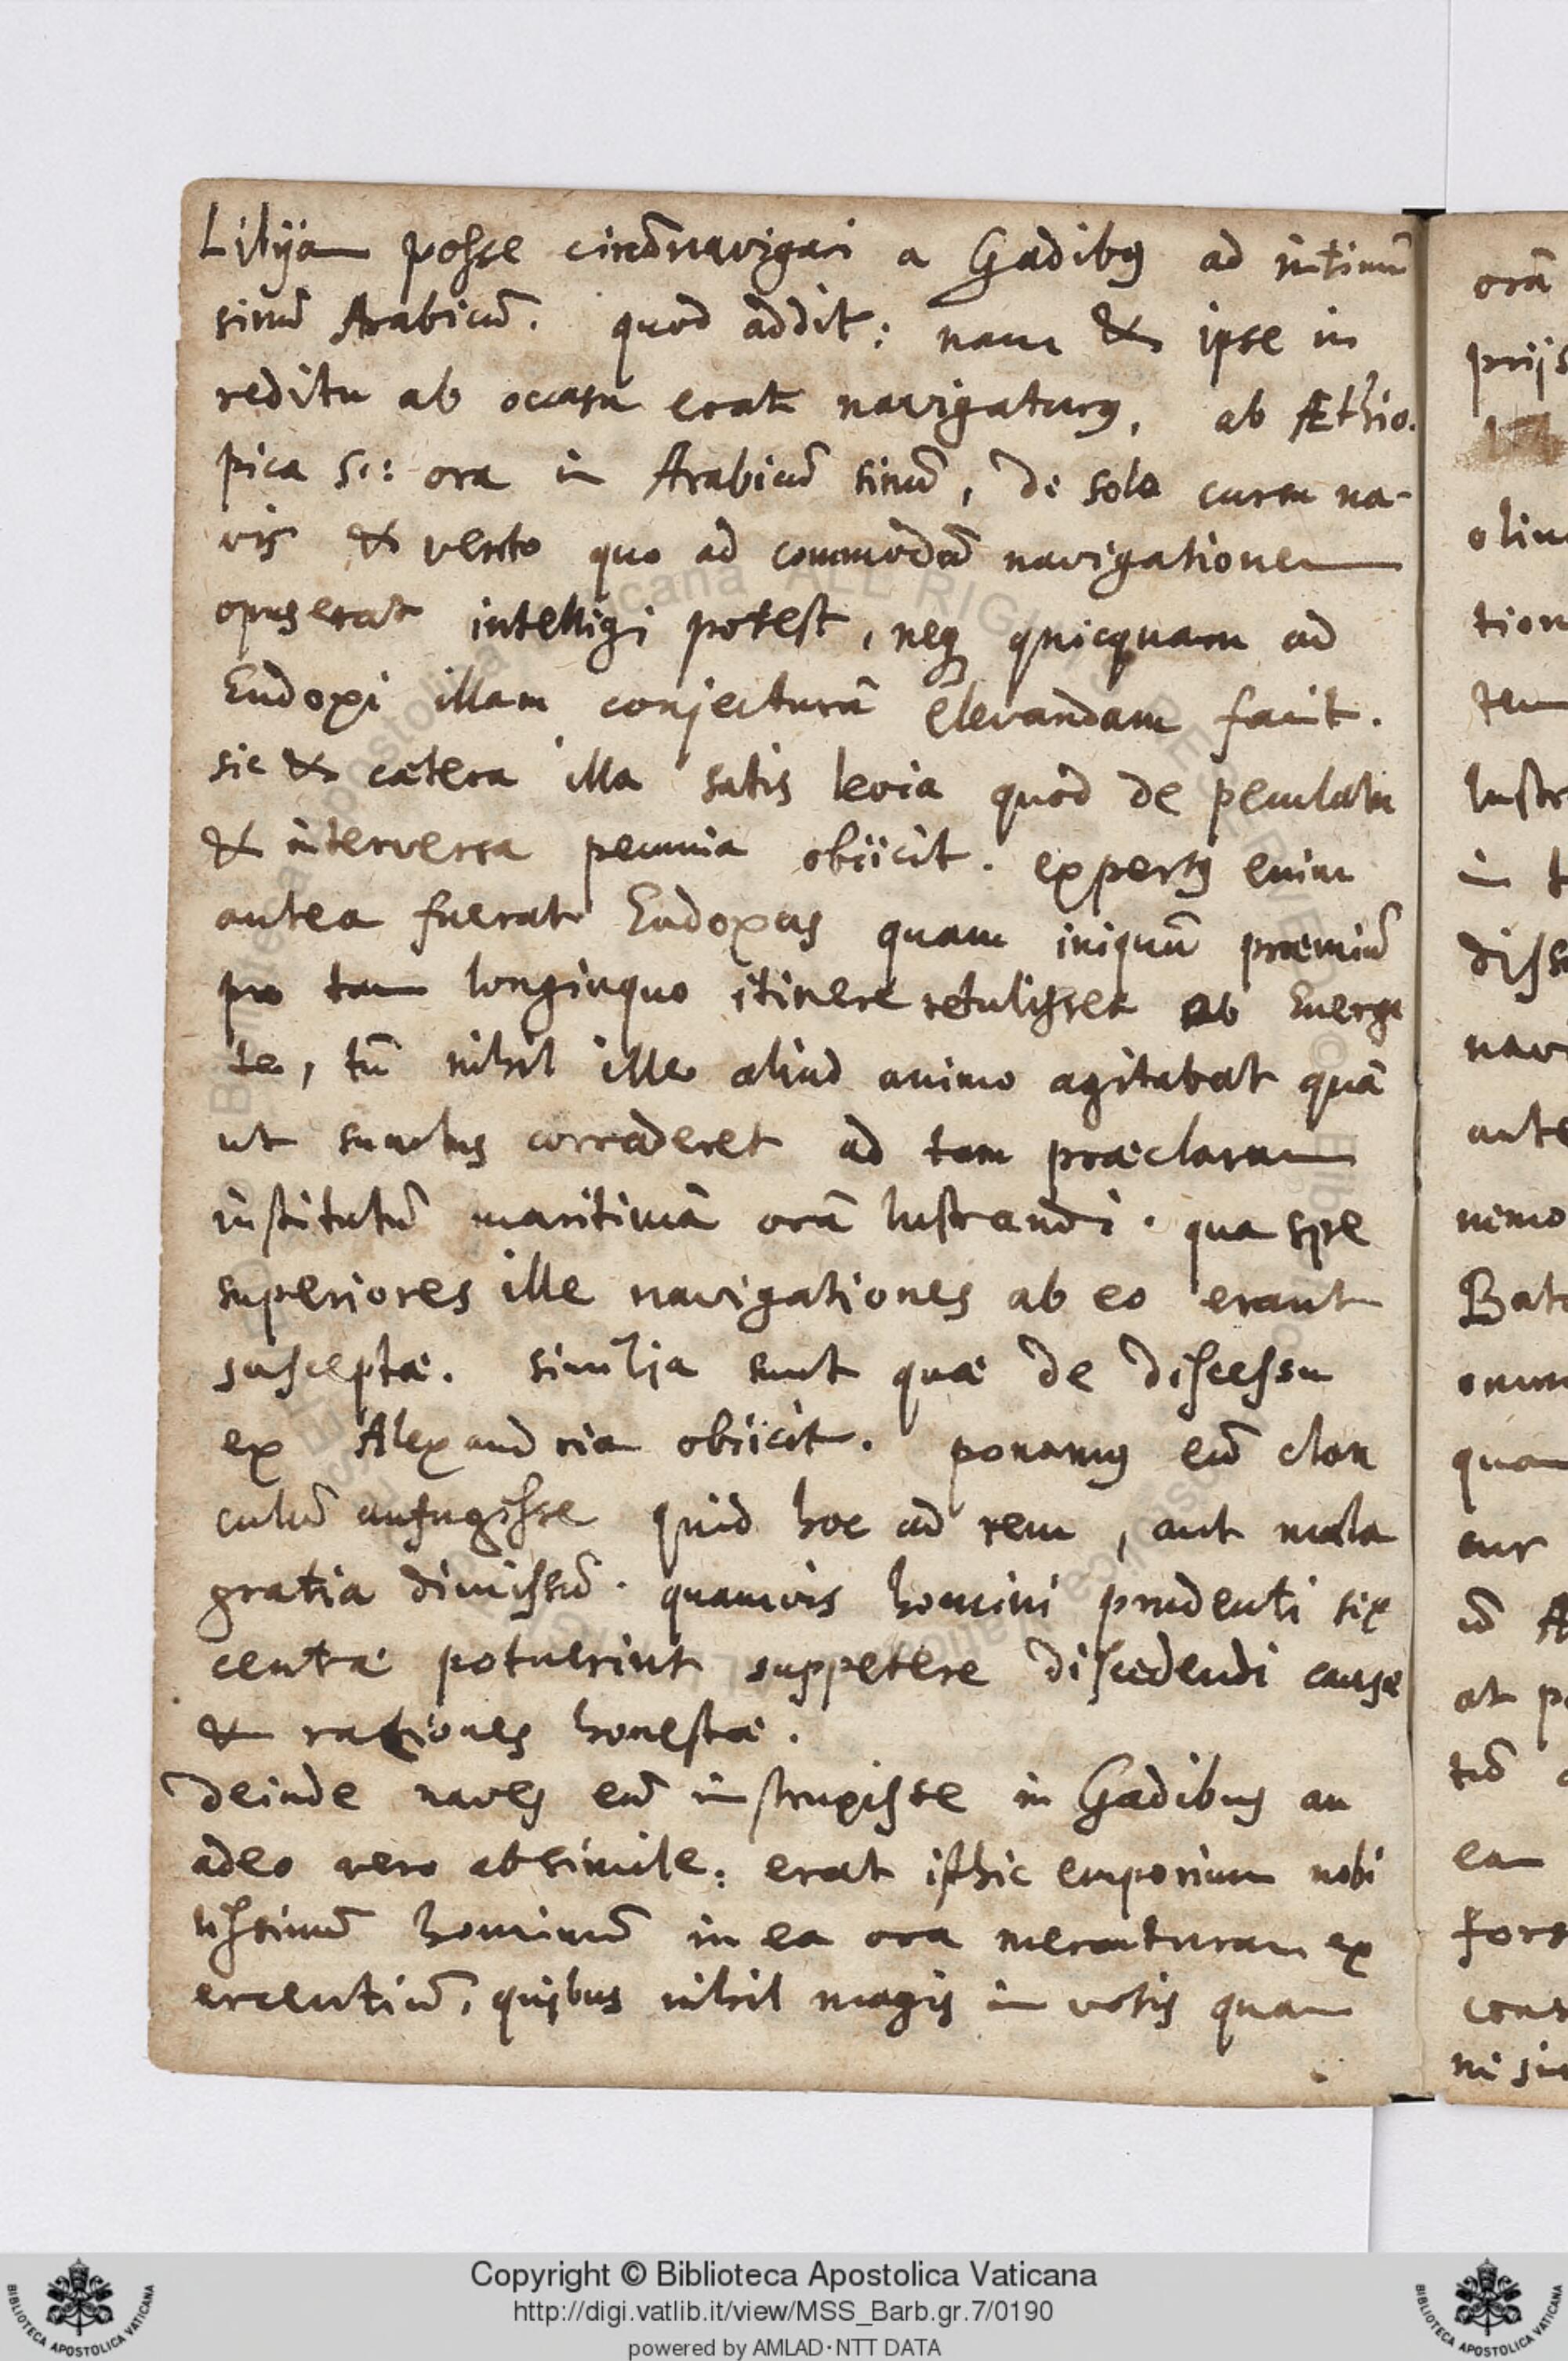 Libÿam posse circũnavigari a Gadibꝰ ad intimũ
sinũ Arabicũ. quod addit: nam & ipse in
reditu ab occasu erat navigaturꝰ, ab Æthio-
pica sc: ora in Arabicũ sinũ, de solo cursu na-
vis & vento quo ad commodã navigationem
opus erat intelligi potest, neqꝫ quicquam ad
Eudoxi illam conjecturã elevandam facit.
sic & cætera illa satis levia quod de peculatu
& interversa pecunia obiicit. expertꝰ enim
antea fuerat Eudoxus quam iniquũ præmiũ
pro tam longinquo itinere retulisset ab Everge
te, tũ nihil ille aliud animo agitabat quã
ut sumtus corraderet ad tam præclarum
institutũ maritimã orã lustrandi. qua spe
superiores ille navigationes ab eo erant
susceptæ. similia sunt quæ de discessu
ex Alexandria obiicit. ponamꝰ eũ clan
culũ aufugisse quid hoc ad rem, aut mala
gratia dimissũ. quamvis homini prudenti sex
centæ potuerint suppetere discedendi causæ
& rationes honestæ.
Deinde naves eũ instruxisse in Gadibus an
adeo vero absimile: erat isthic emporium nobi
lissimũ hominũ in ea ora mercaturam ex
ercentiũ, quibus nihil magis in votis quam
orã
prijs
olim
tion
tem
lustr
in t
disse
nav
ante
nemo
Bata
omn
quam
cur
ũ A
at p
tũ
eam
fors
cons
ni sin
Copyright © Biblioteca Apostolica Vaticana
http://digi.vatlib.it/view/MSS_Barb.gr.7/0190
powered by AMLAD·NTT DATA
BIBLIOTECA APOSTOLICA VATICANA
BIBLIOTECA APOSTOLICA VATICANA